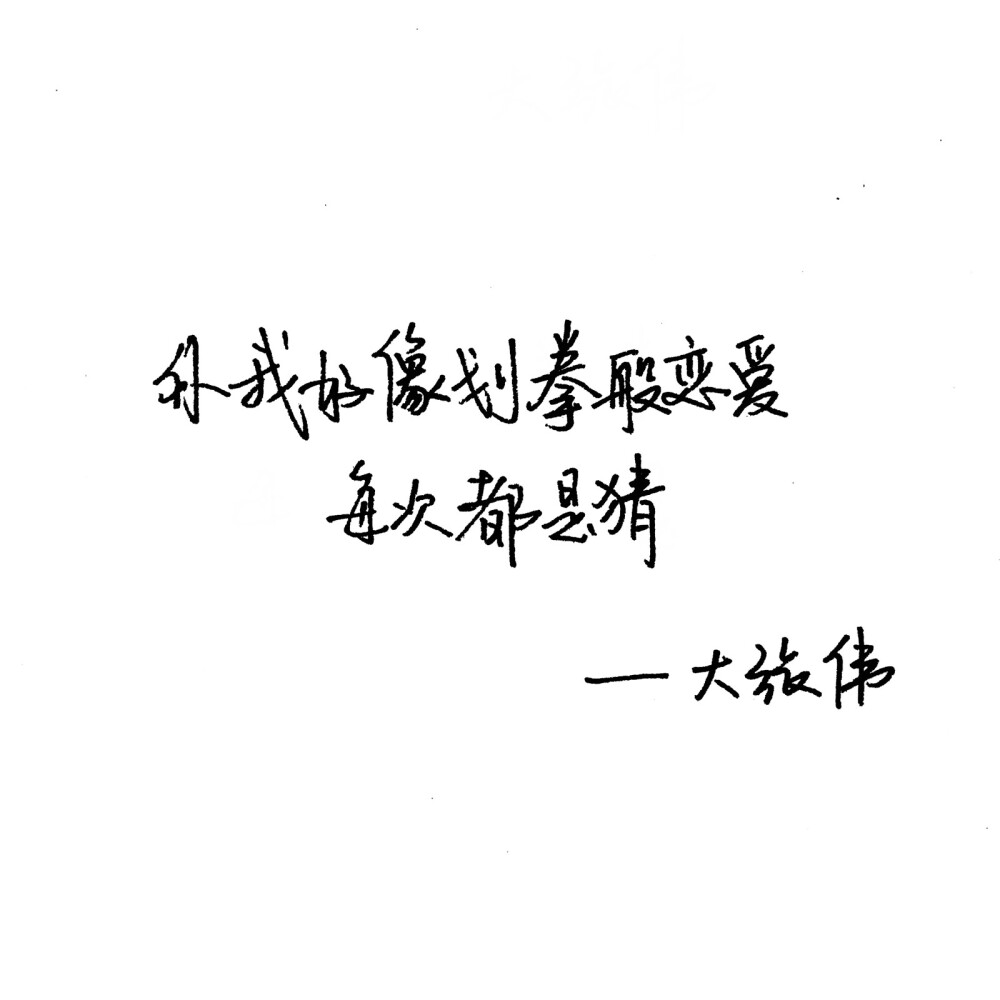 你我好像划拳般恋爱
每次都是猜
— 大张伟